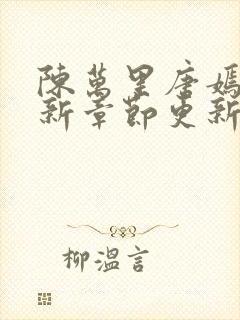 陳萬里唐嫣
新章節更新
柳溫言